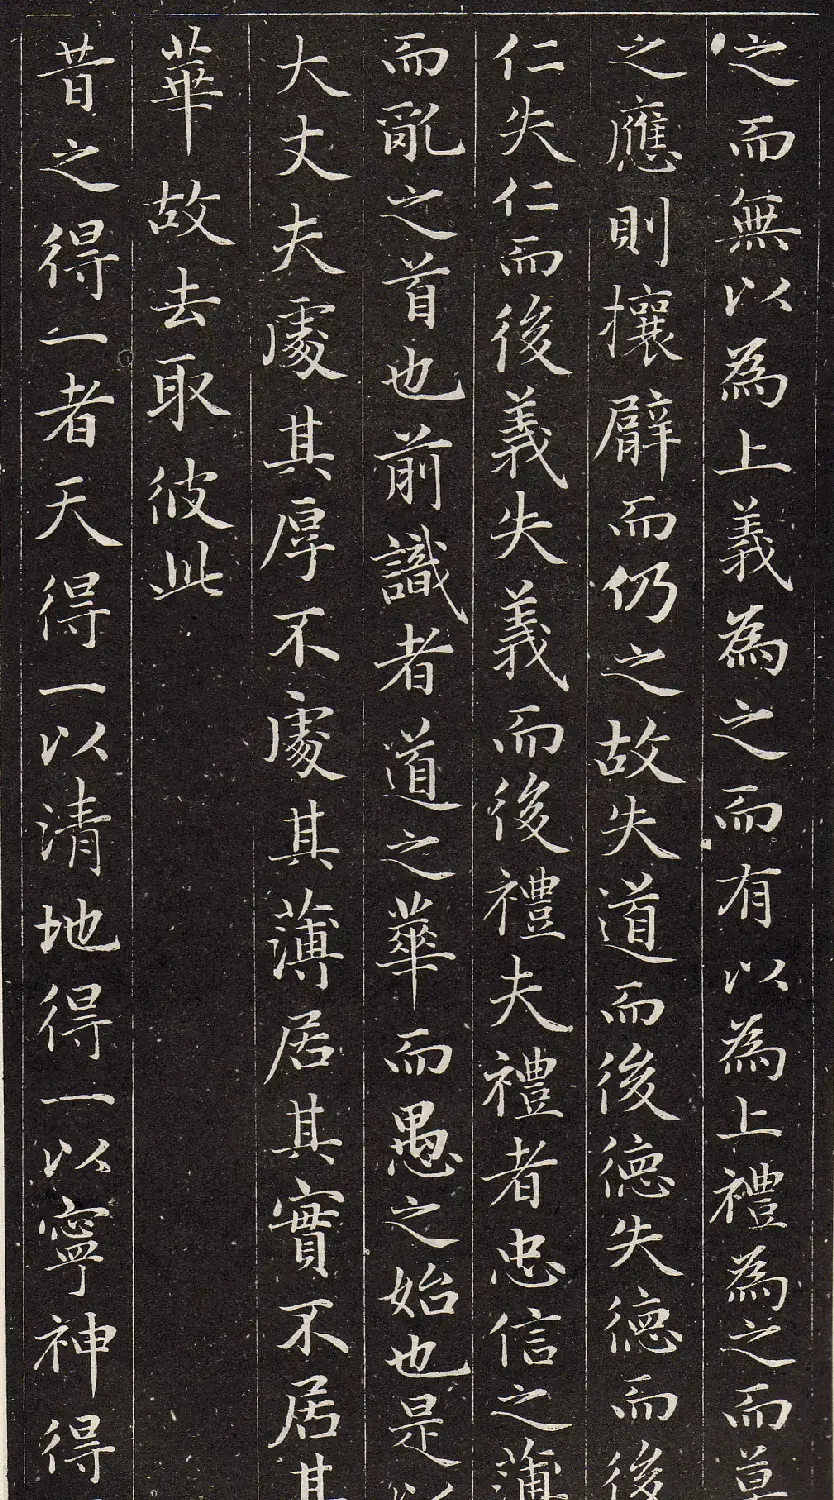 之而無以為上義為之而有以為上禮為之而莫
之應則攘臂而仍之故失道而後德失德而後
仁失仁而後義失義而後禮夫禮者忠信之薄
而亂之首也前識者道之華而愚之始也是以
大丈夫處其厚不處其薄居其實不居其
華故去取彼此
昔之得一者天得一以清地得一以寧神得